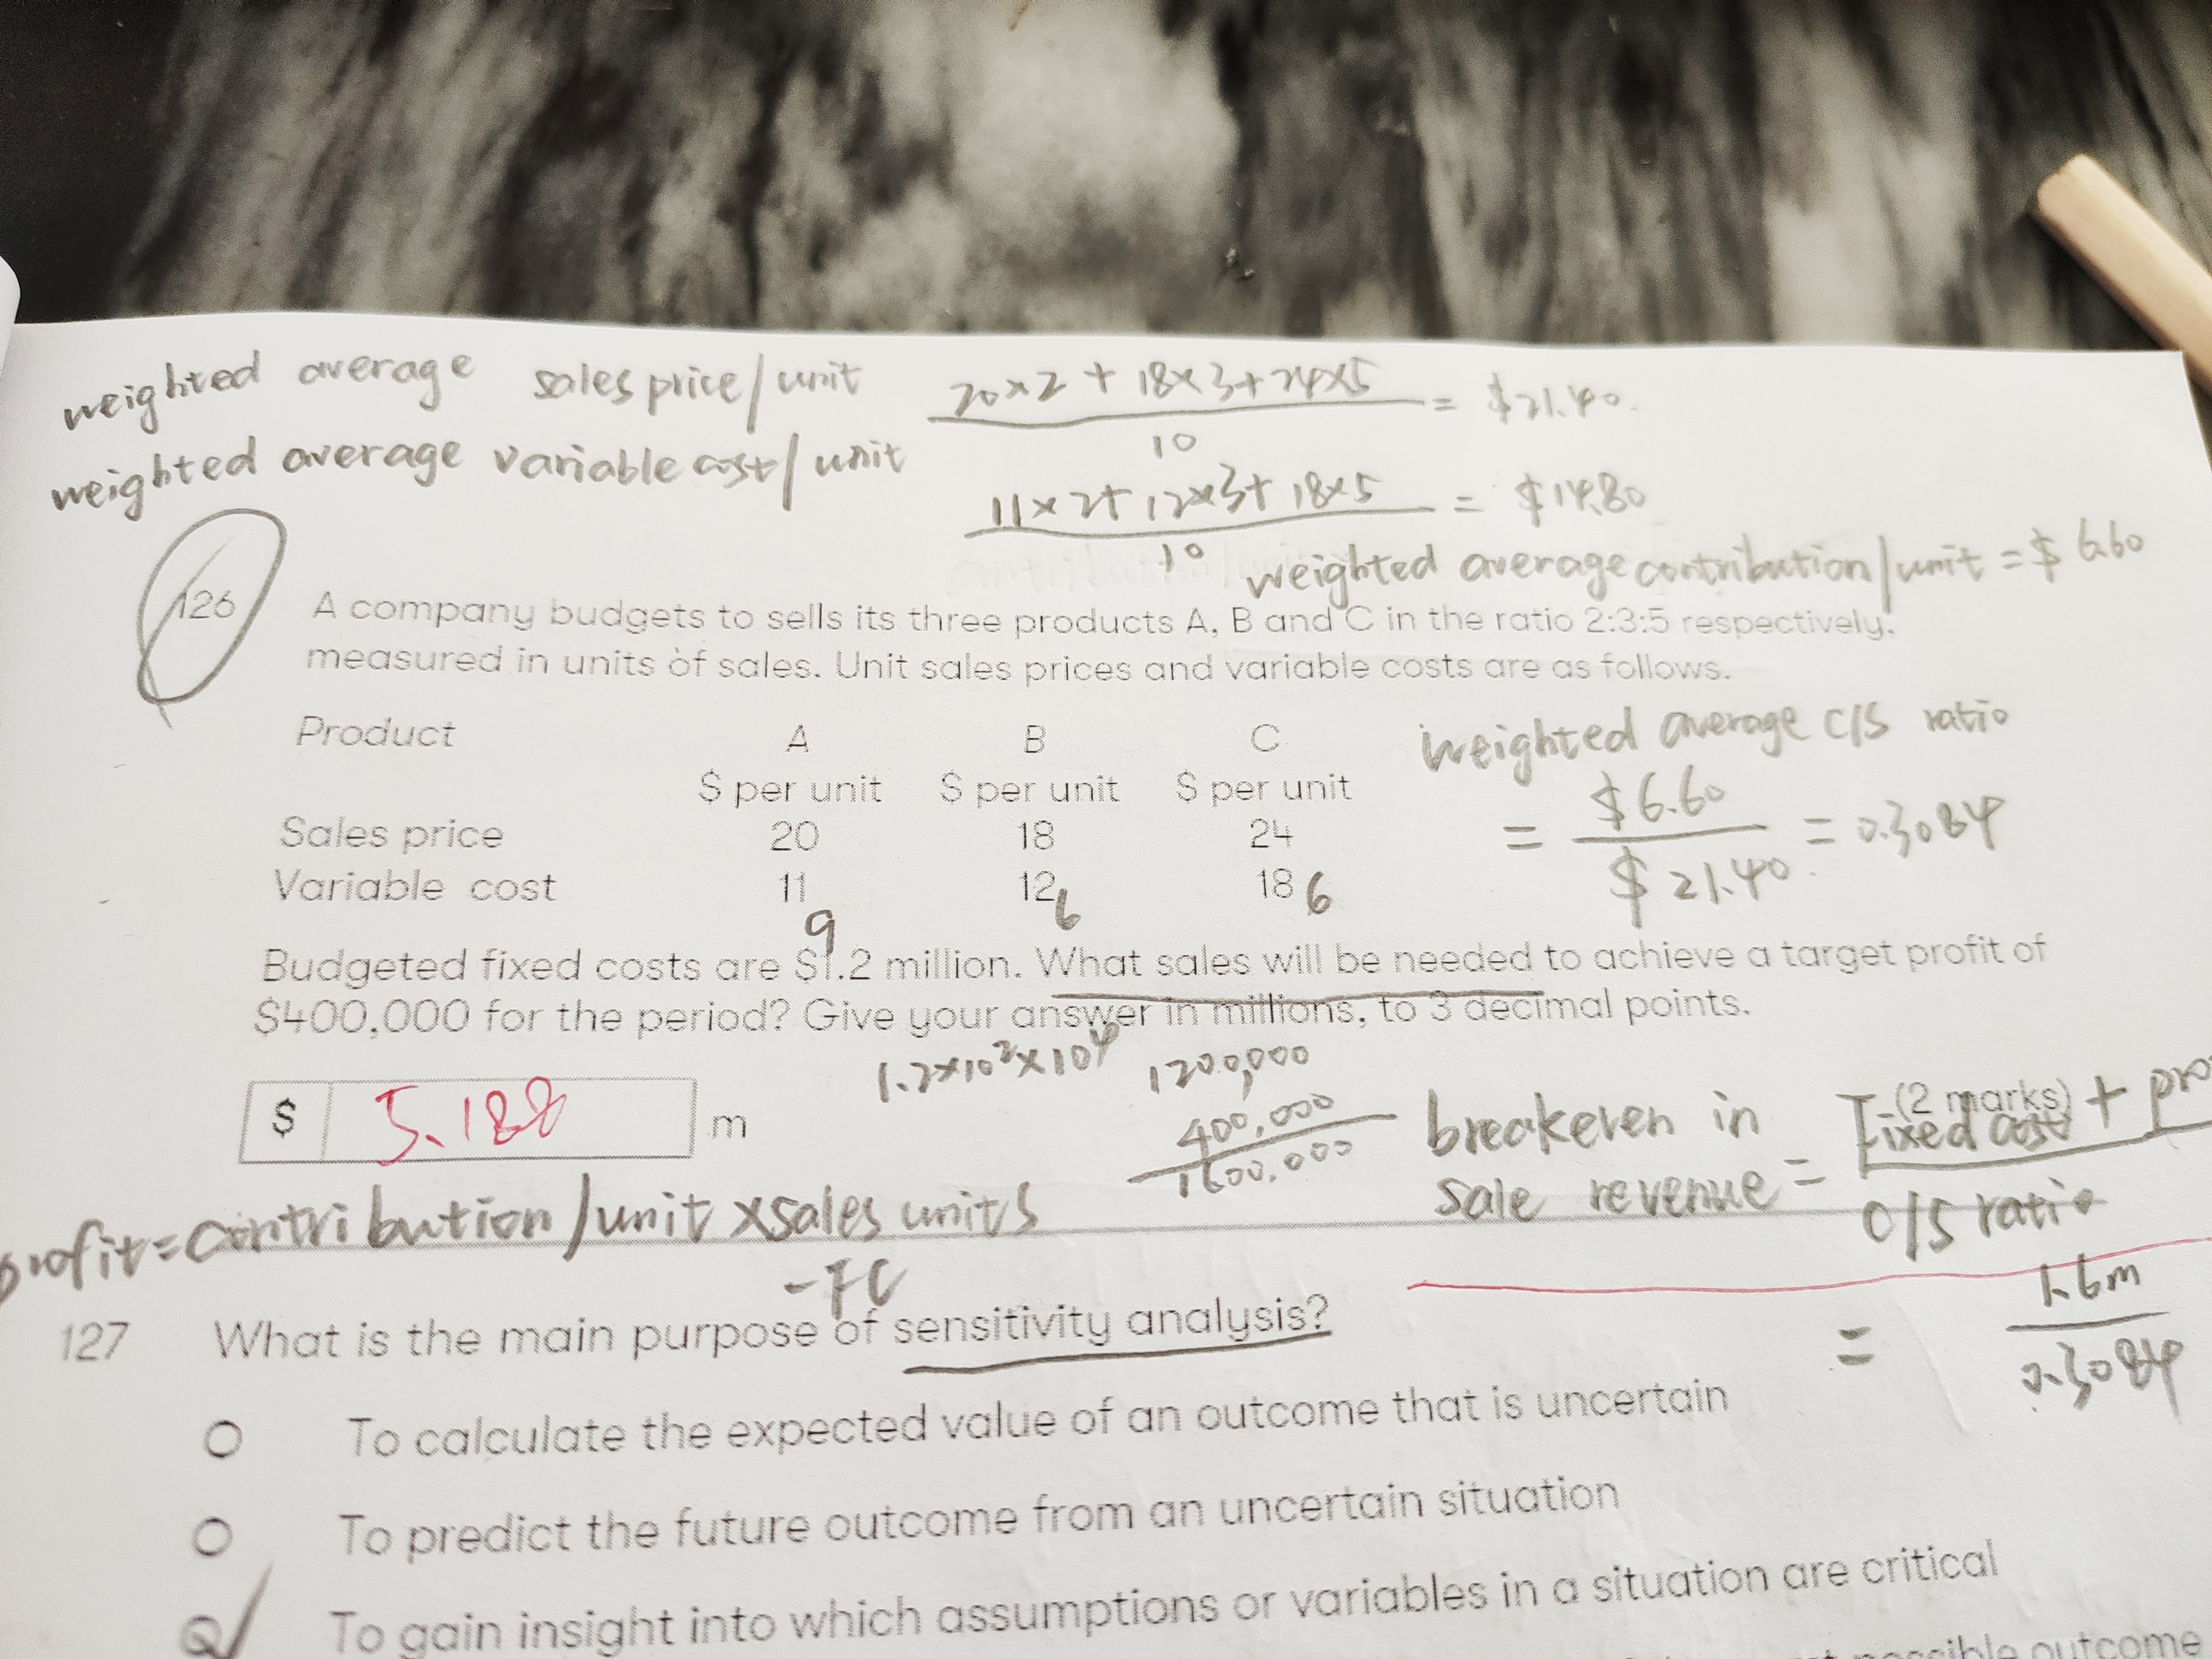 weighted average sales price/unit 20×2 + 18×3+24×5 / 10 = $21.40.
weighted average variable cost/unit 11×2+12×3+18×5 / 10 = $14.80
weighted average contribution/unit = $6.60
126 A company budgets to sells its three products A, B and C in the ratio 2:3:5 respectively,
measured in units of sales. Unit sales prices and variable costs are as follows.
Product A B C
$ per unit $ per unit $ per unit
Sales price 20 18 24
Variable cost 11 12 18
9 6 6
weighted average C/S ratio
= $6.60 / $21.40 = 0.3084
Budgeted fixed costs are $1.2 million. What sales will be needed to achieve a target profit of
$400,000 for the period? Give your answer in millions, to 3 decimal points.
1.2×10²×10⁴ 1200,000
400,000
1600,000
(2 marks)
$ 5.188 m
breakeven in
sale revenue = Fixed cost + pro
C/S ratio
= 1.6m
0.3084
profit=contribution/unit ×sales units
-FC
127 What is the main purpose of sensitivity analysis?
To calculate the expected value of an outcome that is uncertain
To predict the future outcome from an uncertain situation
To gain insight into which assumptions or variables in a situation are critical
possible outcome